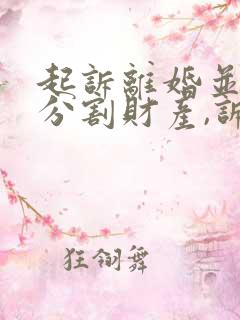 起訴離婚並
分割財產,訴
狂翎舞